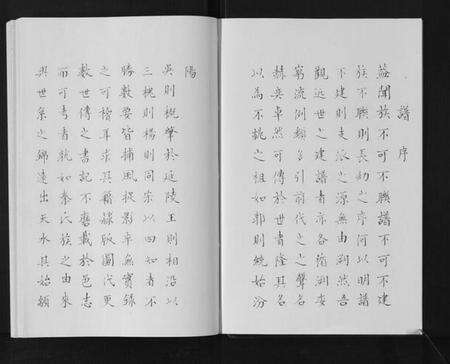 譜序
蓋聞族不可不聯譜不可不建
族不聯則長幼之序何以明譜
不建則支派之源無由溯然吾
觀近世之建譜者亦各隨波
窮流例類多引前代之聲名
赫奕卓然可傳於世者隆其名
以為不祧之祖如郭則統始汾
陽
吳則概肇於延陵王則相沿以
三槐則楊則同宗以四知者不
勝數要皆捕風捉影卒無實錄
之可稽耳求其籍隸版圖代更
數世傳之書記不磨載於邑志
而可考者孰如秦氏族之由來
與世系之綿遠出天水其始顓